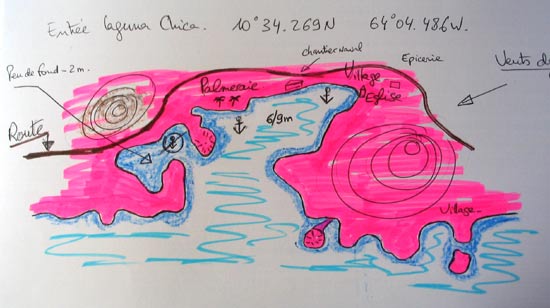 Entrée laguna Chica. 10°34.269N 64°04.486W.
chantier naval
Epicerie
Vents d
Peu de fond - 2m.
Palmeraie
Village
Eglise
6/9m
Route
Village